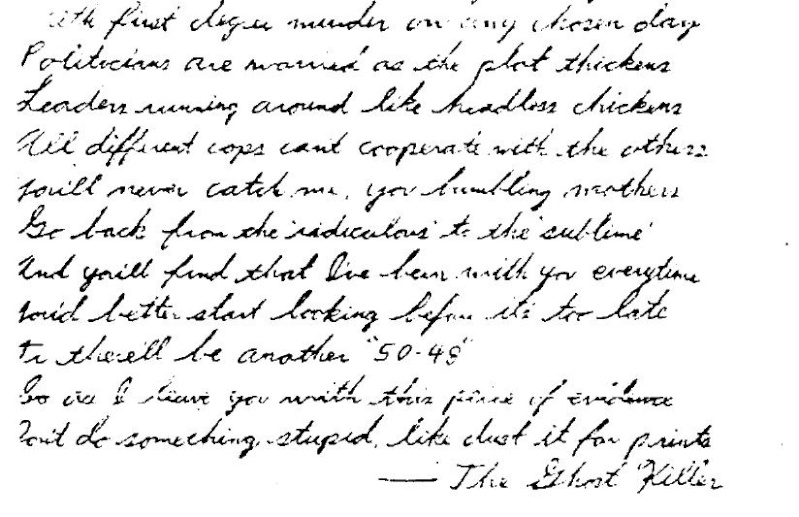 with first degree murder on any chosen day
Politicians are worried as the plot thickens
Leaders running around like headless chickens
All different cops cant cooperate with the others
You'll never catch me, you bumbling mothers
Go back from the 'ridiculous' to the 'sublime'
And you'll find that I've been with you everytime
You'd better start looking before it's too late
Or there'll be another "50-48"
So as I leave you with this piece of evidence
Don't do something stupid, like dust it for prints
— The Ghost Killer